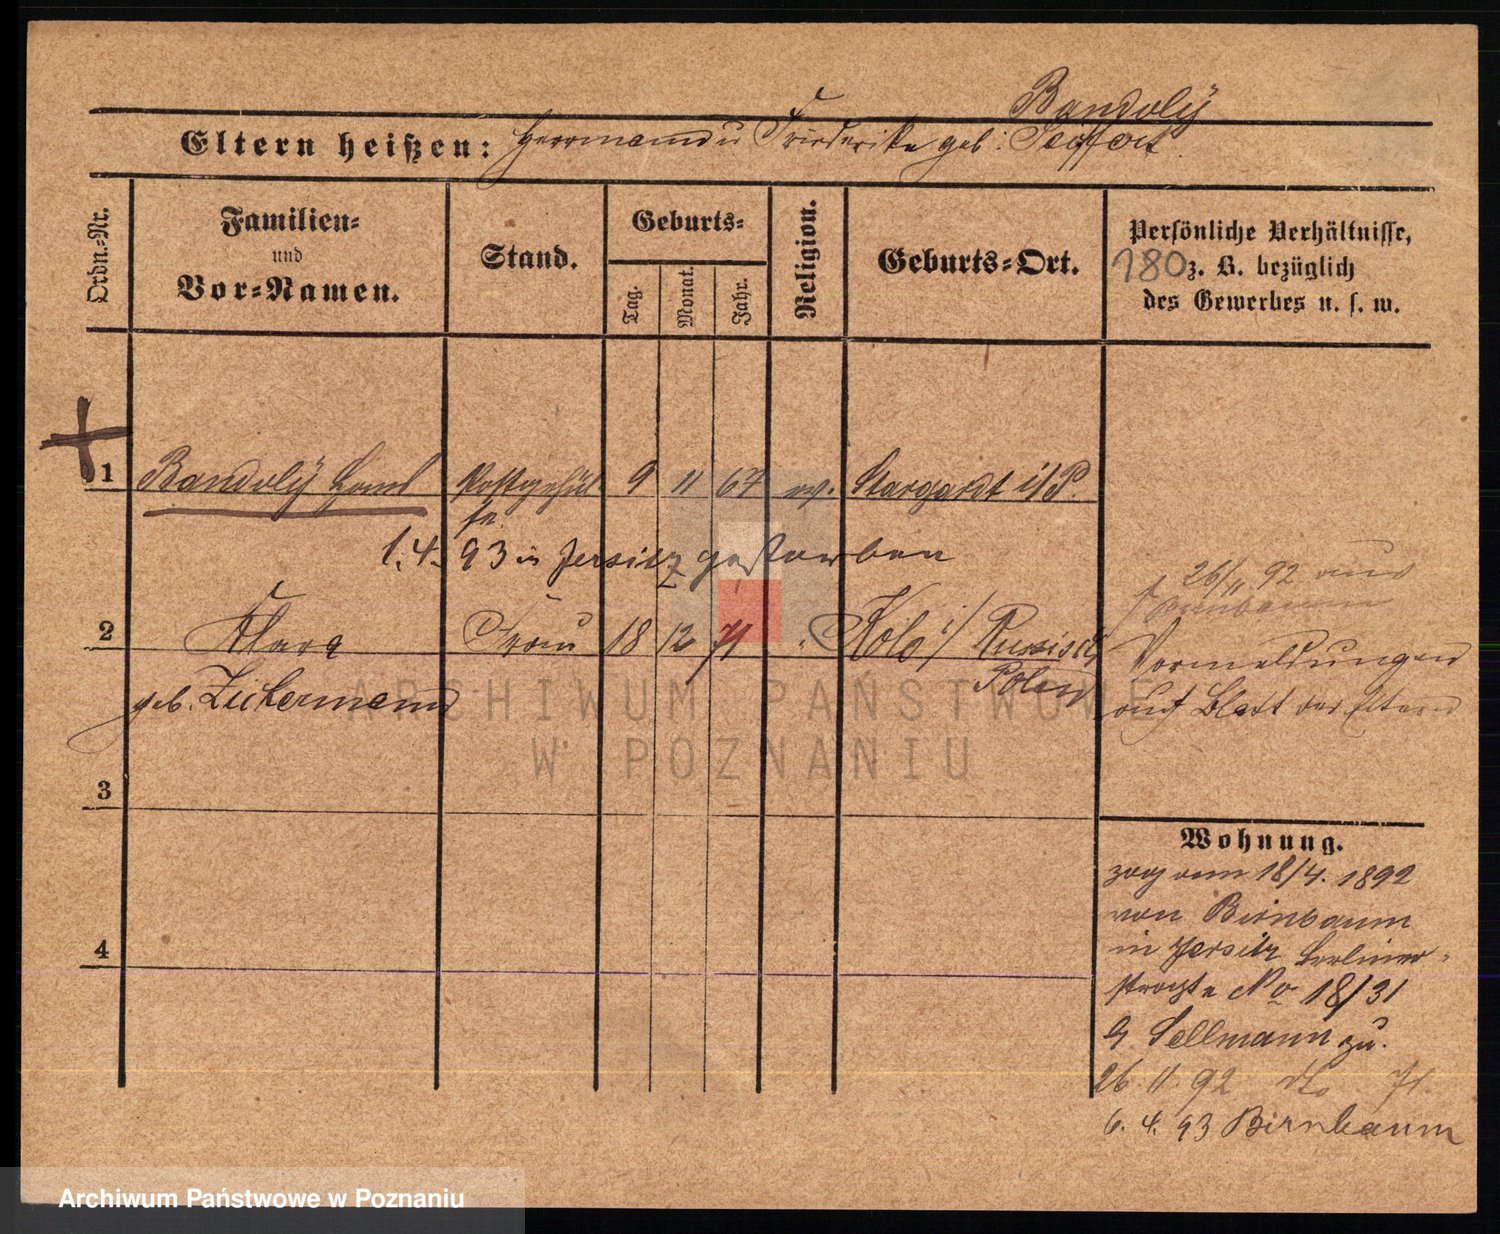 Bandolÿ
Eltern heißen: Herrmann u Friederike geb: Seiffert
Ordn.-Nr.
Familien-
und
Vor-Namen.
Stand.
Geburts-
Tag.
Monat.
Jahr.
Religion.
Geburts-Ort.
Persönliche Verhältnisse,
180 z. B. bezüglich
des Gewerbes u. s. w.
1 Bandolÿ Hans Postgehül 9 11 67 ev. Stargardt i/P.
fe
1. 4. 93 in Jersitz gestorben
26/11 92 aus
Birnbaum
2 Klara Frau 18 12 71 Kolo i/ Russisch
Polen
geb. Zickermann
Vormeldungen
auf Blatt der Eltern
3
4
Wohnung.
zog am 18/4. 1892
von Birnbaum
in Jersitz Berliner-
straße No 18/31
Sellmann zu.
26. 11. 92 do 71.
6. 4. 93 Birnbaum
ARCHIWUM PAŃSTWOWE
W POZNANIU
Archiwum Państwowe w Poznaniu